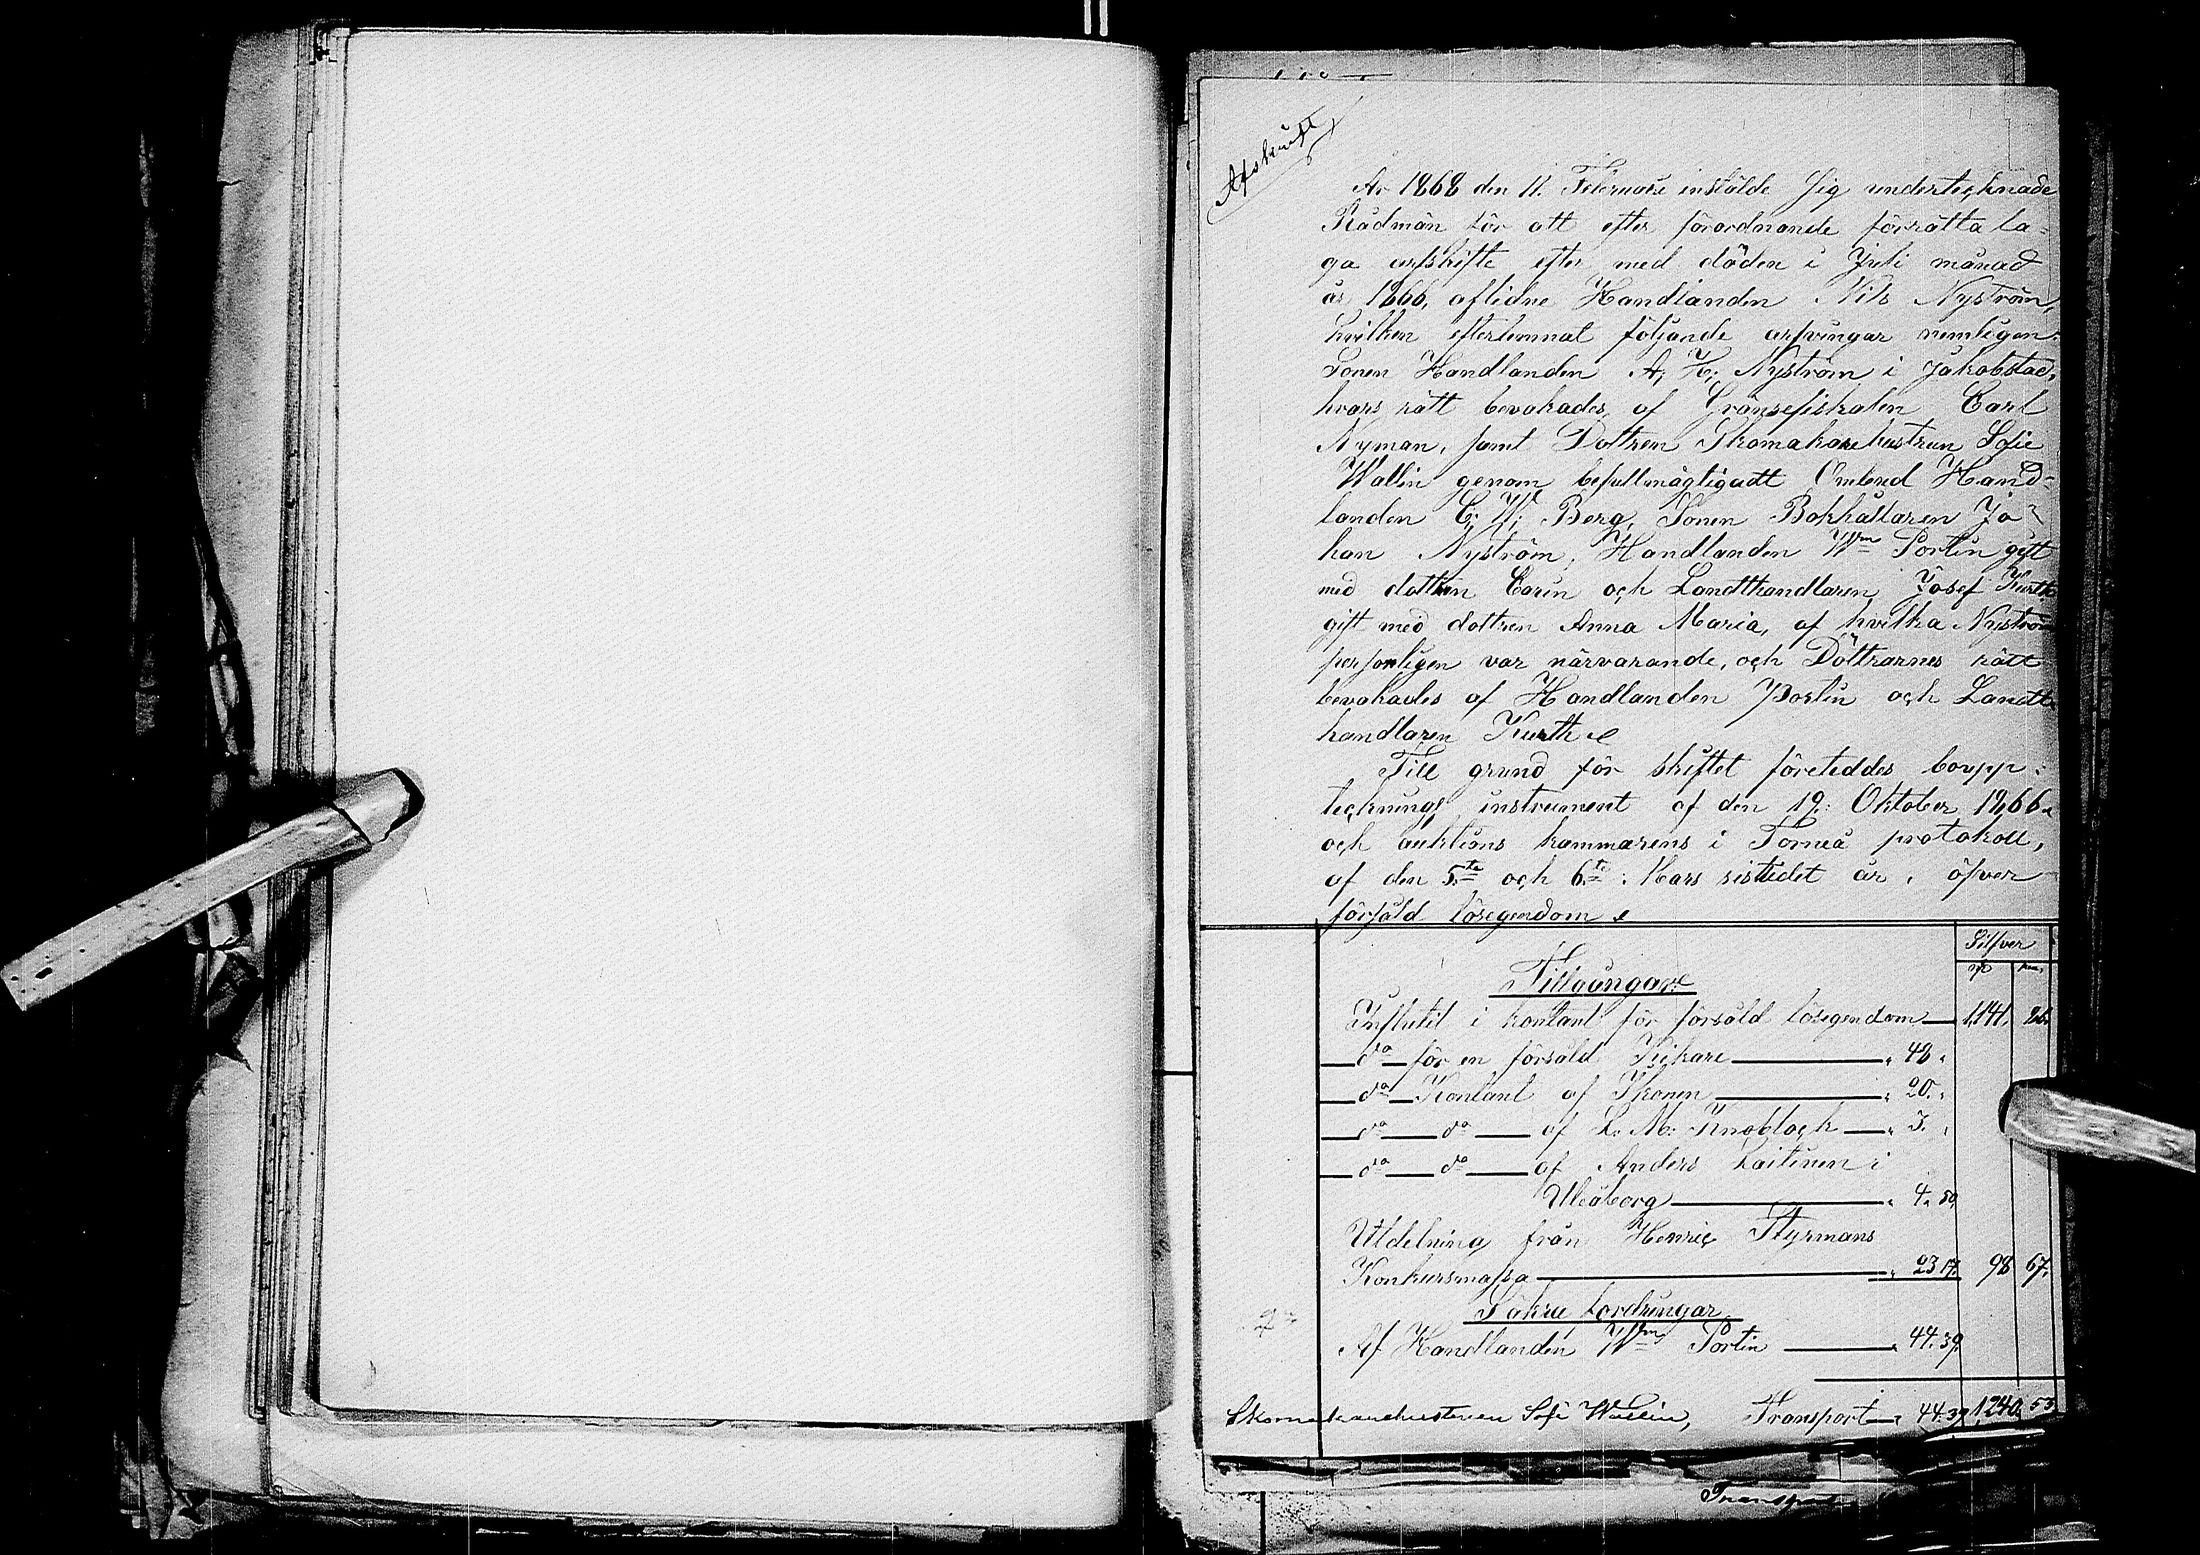 Afskrift
År 1868 den 11. Februari instälde sig undertecknade
Rådmän för att efter förordnande förrätta la-
ga arfskifte efter med döden i Juli månad
år 1866, aflidne Handlanden Nils Nyström,
hvilken efterlemnat följande arfvingar nemligen:
Sonen Handlanden A; H; Nyström i Jakobstad,
hvars rätt bevakades af Gränsefiskalen Carl
Nyman, samt Dottren Skomakarehustrun Sofie
Wallin genom befullmägtigadt Ombud Hand-
landen C; W; Berg, Sonen Bokhållaren Jo-
han Nyström, Handlanden Wm Portin gift
med dottren Carin och Landthandlaren Josef Kurth
gift med dottren Anna Maria, af hvilka Nyström
personligen var närvarande, och Döttrarnes rätt
bevakades af Handlanden Portin och Landt-
handlaren Kurth
Till grund för skiftet företeddes boupp-
tecknings instrument af den 19: Oktober 1866
och auktions kammarens i Torneå protokoll,
af den 5te och 6te Mars sistledet år, öfver
försåld lösegendom
Silfver
Tillgångar
Influtit i kontant för försåld lösegendom 1,141. 86.
do för en försåld Kikare 48.
do Kontant af Ikonen 20.
do do af L: M: Knoblock 3.
do do af Anders Laitinen i
Uleåborg 4. 50
Utdelning från Henric Styrmans
Konkursmassa 23 17. 98 67.
Säkra fordringar
Af Handlanden Wm Portin 44. 39.
Skomakarehustrun Sofi Wallin, Transport 44. 39 1240. 53
Transport